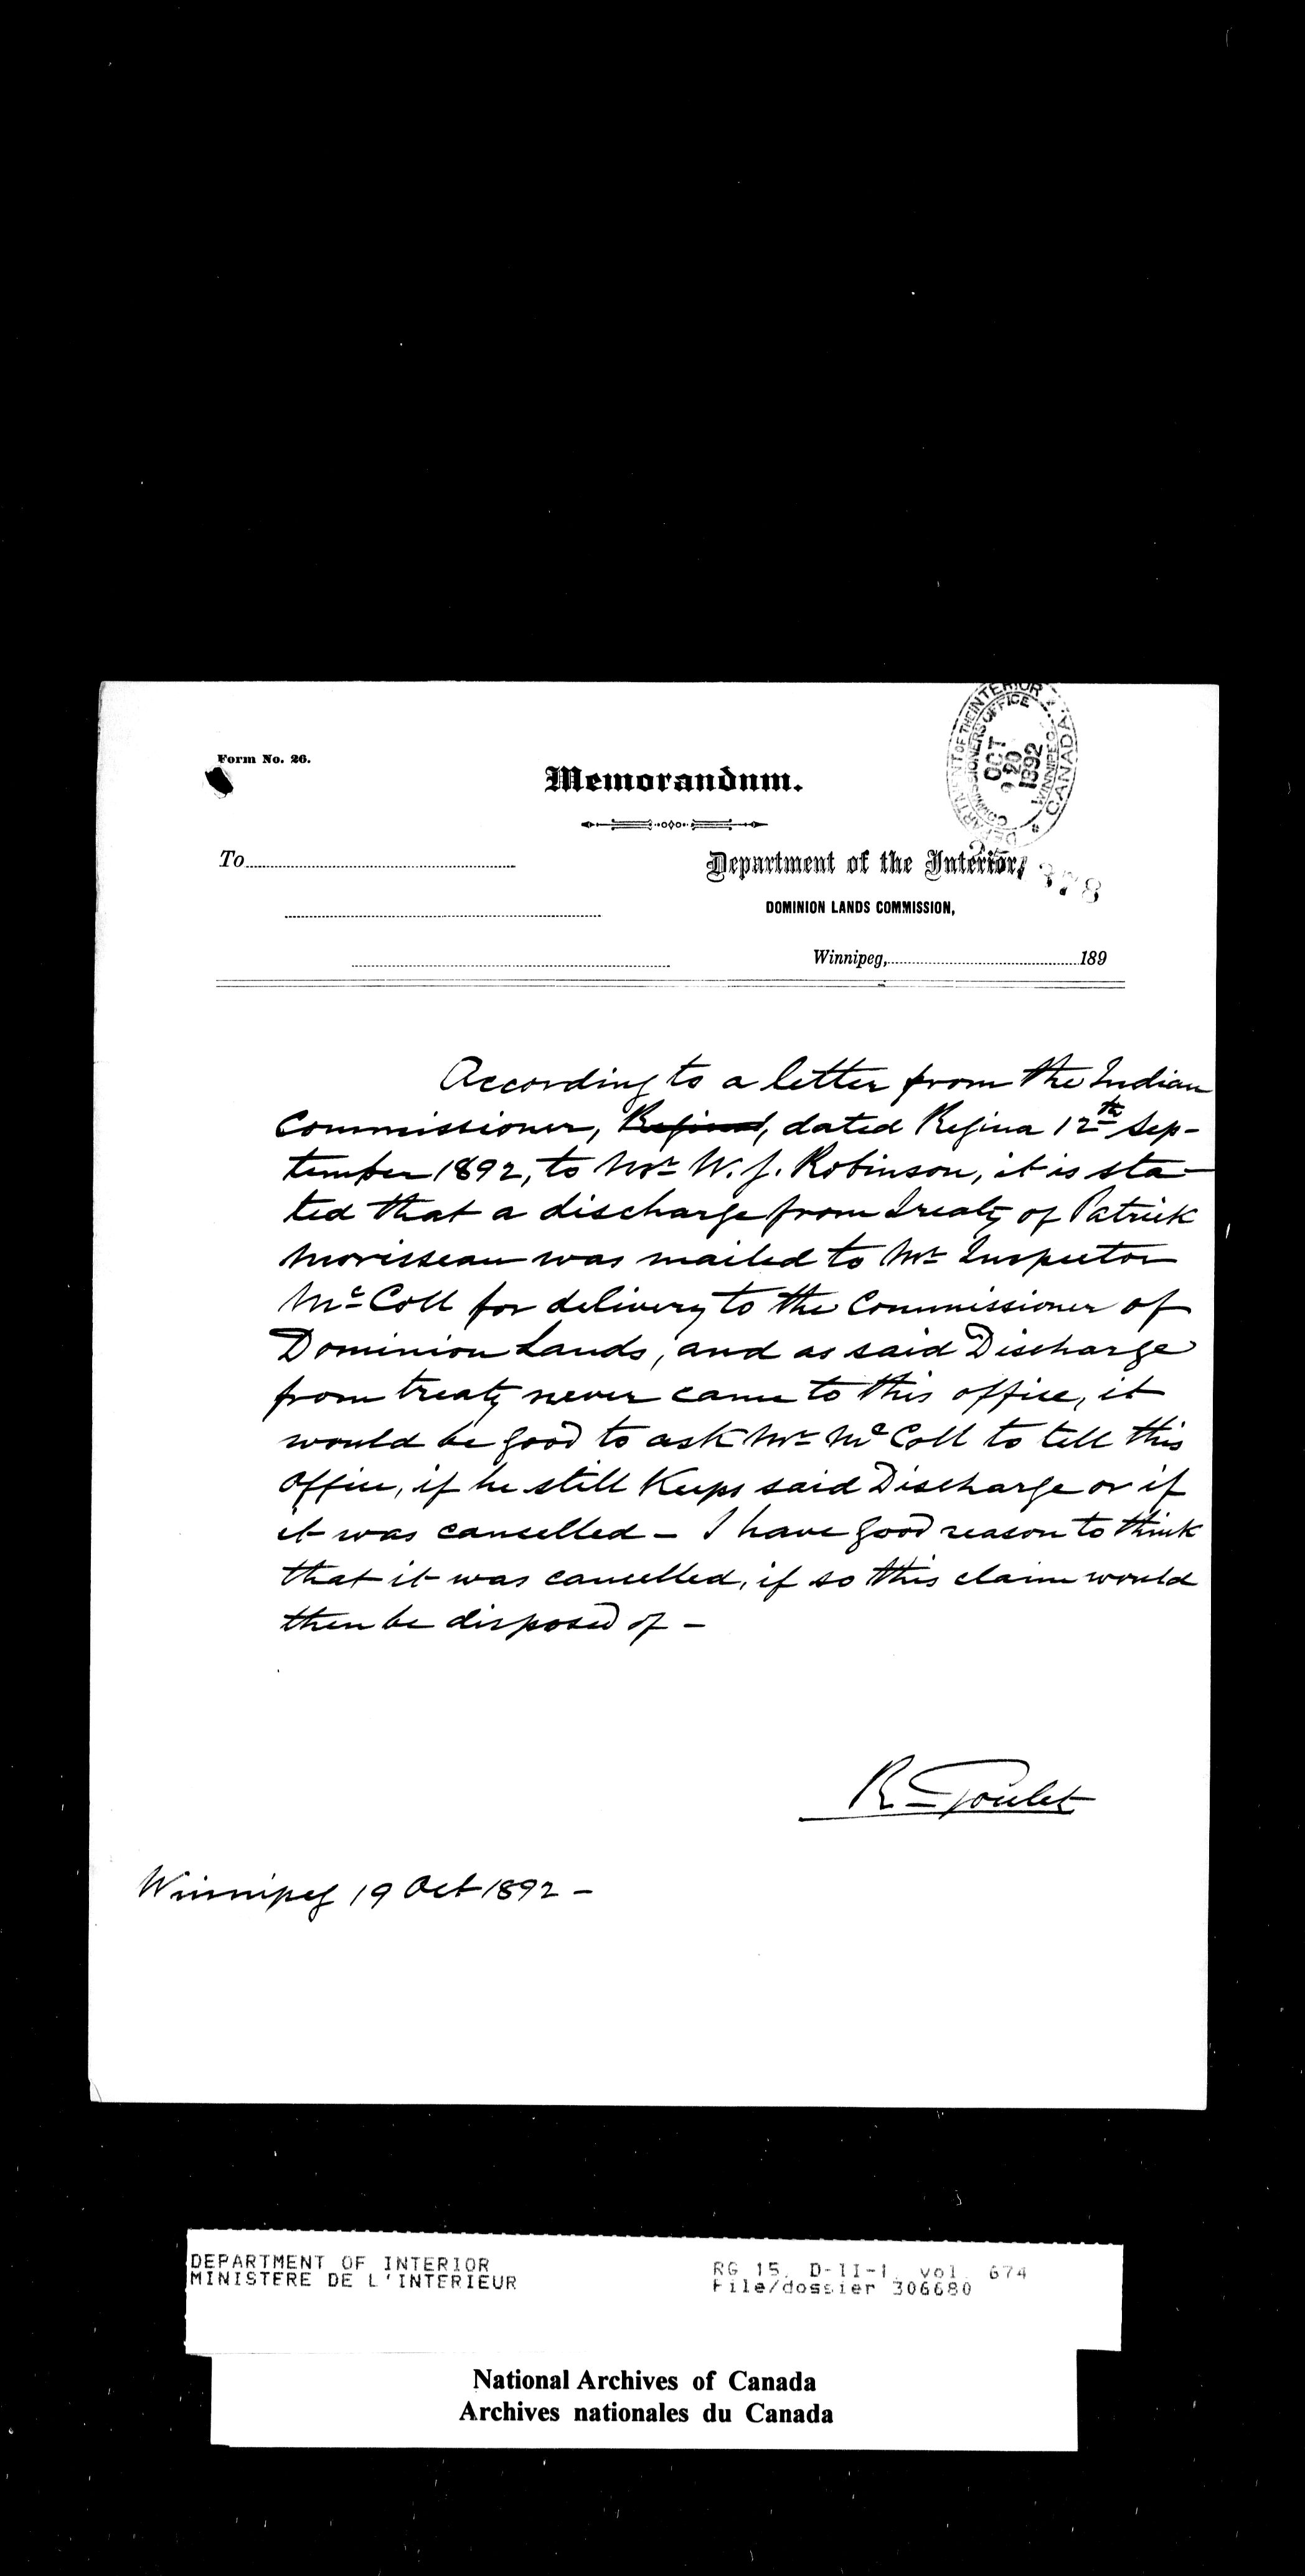 Form No. 26.
Memorandum.
DEPARTMENT OF THE INTERIOR
COMMISSIONERS OFFICE
OCT
20
1892
WINNIPEG
CANADA
To
Department of the Interior,
378
DOMINION LANDS COMMISSION,
Winnipeg, 189
According to a letter from the Indian
Commissioner, Regina, dated Regina 12th Sep-
tember 1892, to Mr. W. J. Robinson, it is sta-
ted that a discharge from treaty of Patrick
Morisseau was mailed to Mr Inspector
McColl for delivery to the Commissioner of
Dominion Lands, and as said Discharge
from treaty never came to this office, it
would be good to ask Mr McColl to tell this
office, if he still keeps said Discharge or if
it was cancelled – I have good reason to think
that it was cancelled, if so this claim would
then be disposed of –
R. Goulet
Winnipeg 19 Oct 1892 –
DEPARTMENT OF INTERIOR
MINISTERE DE L'INTERIEUR
RG 15, D-II-1, vol. 674
File/dossier 306680
National Archives of Canada
Archives nationales du Canada